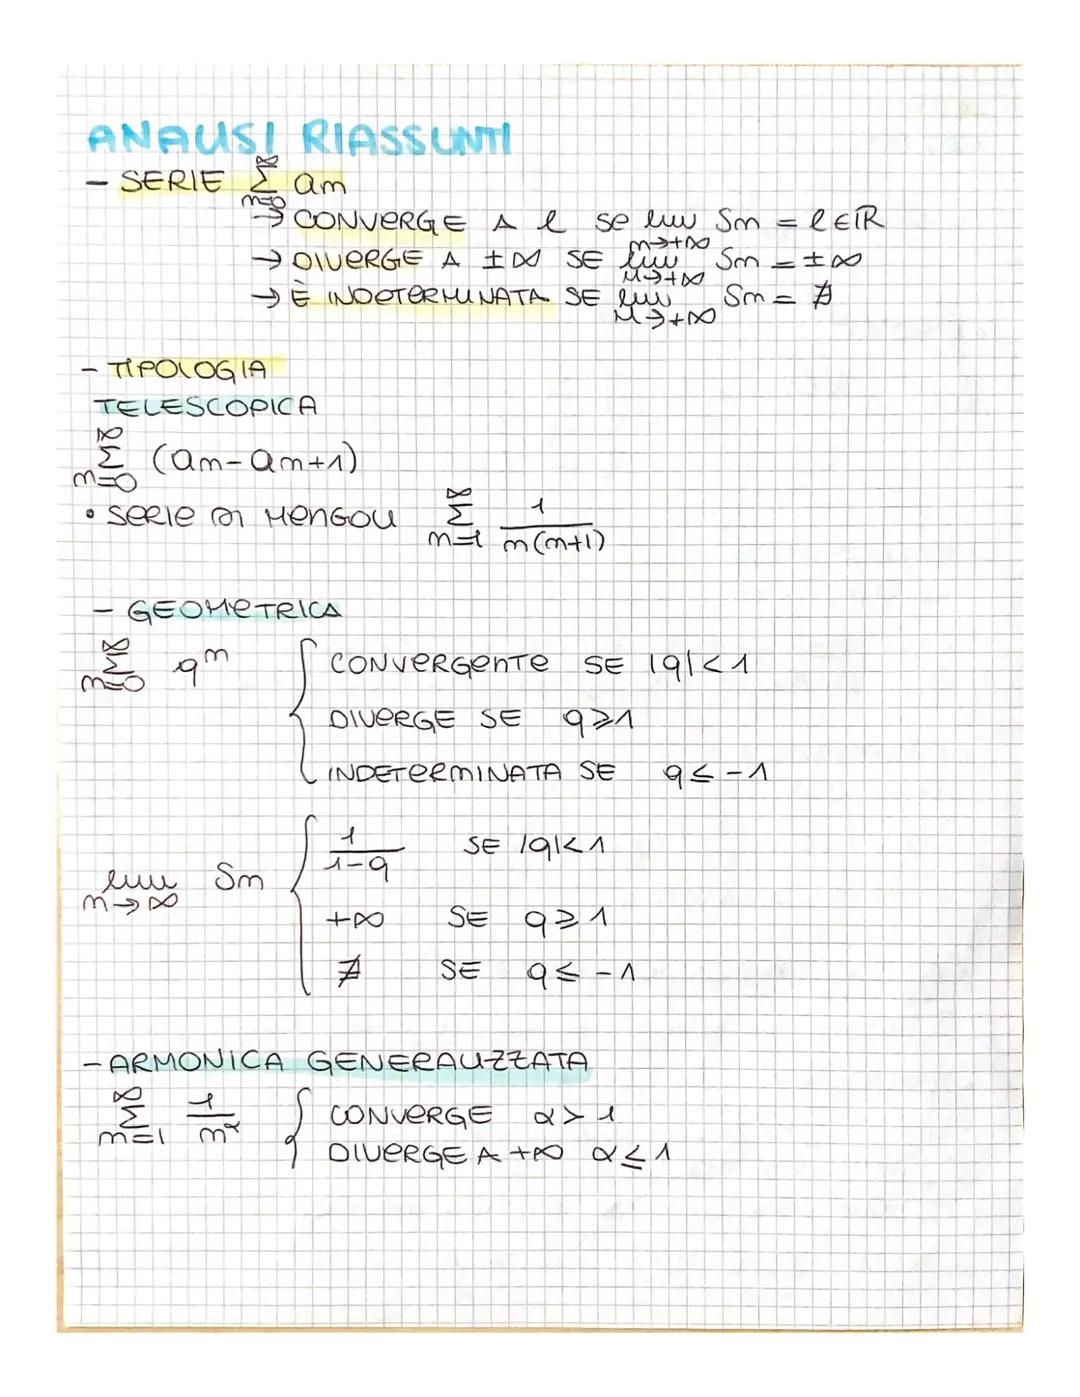 ANALISI RIASSUNTI
- SERIE ∑_{n=0}^{∞} an
→ CONVERGE A l se lim_{n→+∞} Sn = l ∈ ℝ
→ DIVERGE A ±∞ SE lim_{n→+∞} Sn = ±∞
→ È INDETERMINATA SE lim_{n→+∞} Sn = ∄
- TIPOLOGIA
TELESCOPICA
∑_{n=0}^{∞} (an - an+1)
• SERIE DI MENGOLI ∑_{n=1}^{∞} 1/(n(n+1))
- GEOMETRICA
∑_{n=0}^{∞} q^n { CONVERGENTE SE |q| < 1
DIVERGE SE q ≥ 1
INDETERMINATA SE q ≤ -1
lim_{n→∞} Sn { 1/(1-q) SE |q| < 1
+∞ SE q ≥ 1
∄ SE q ≤ -1
- ARMONICA GENERALIZZATA
∑_{n=1}^{∞} 1/n^α { CONVERGE α > 1
DIVERGE A +∞ α ≤ 1